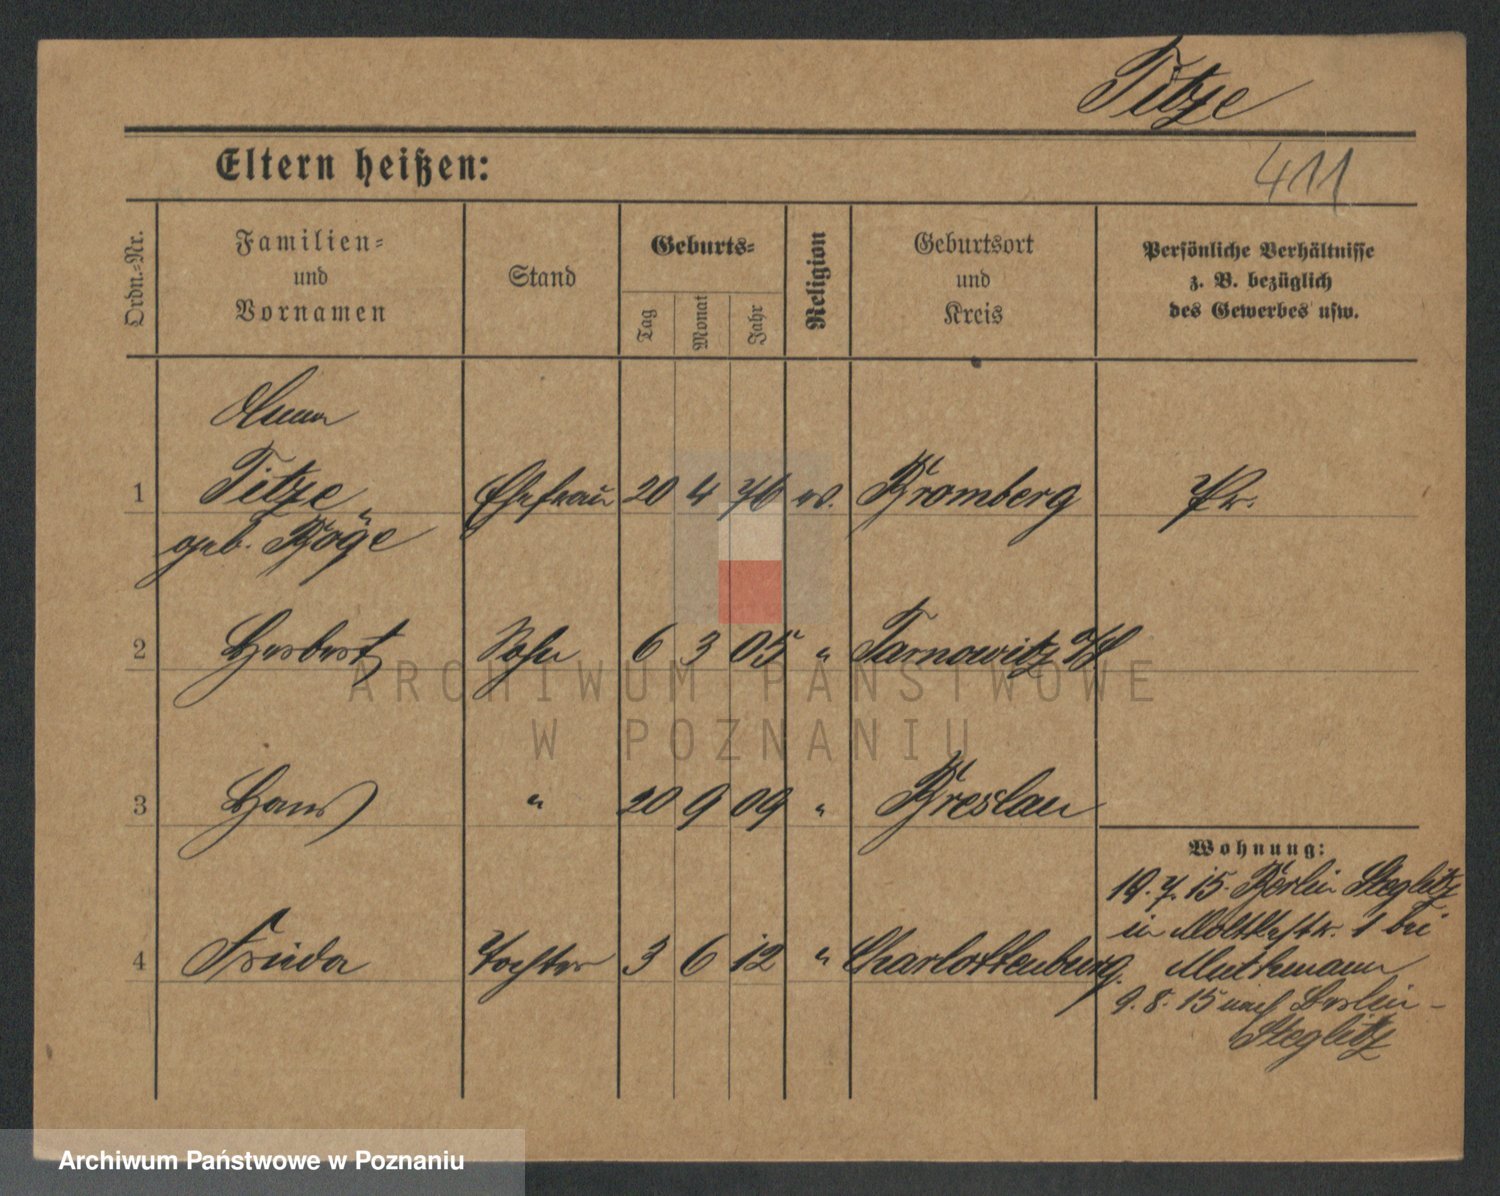 Titze
Eltern heißen:
411
Ordn.=Nr.
Familien=
und
Vornamen
Stand
Geburts=
Tag
Monat
Jahr
Religion
Geburtsort
und
Kreis
Persönliche Verhältnisse
z. B. bezüglich
des Gewerbes usw.
Anna
1 Titze Ehefrau 20 4 76 ev. Bromberg Pr.
geb. Böge
2 Herbert Sohn 6 3 05 " Tarnowitz O/S
3 Hans " 20 9 09 " Breslau
Wohnung:
4 Frieda Tochter 3 6 12 " Charlottenburg
19.7.15. Berlin Steglitz
in Moltkestr. 1 bei
9.8.15 nach Berlin-
Steglitz
ARCHIWUM PAŃSTWOWE
W POZNANIU
Archiwum Państwowe w Poznaniu